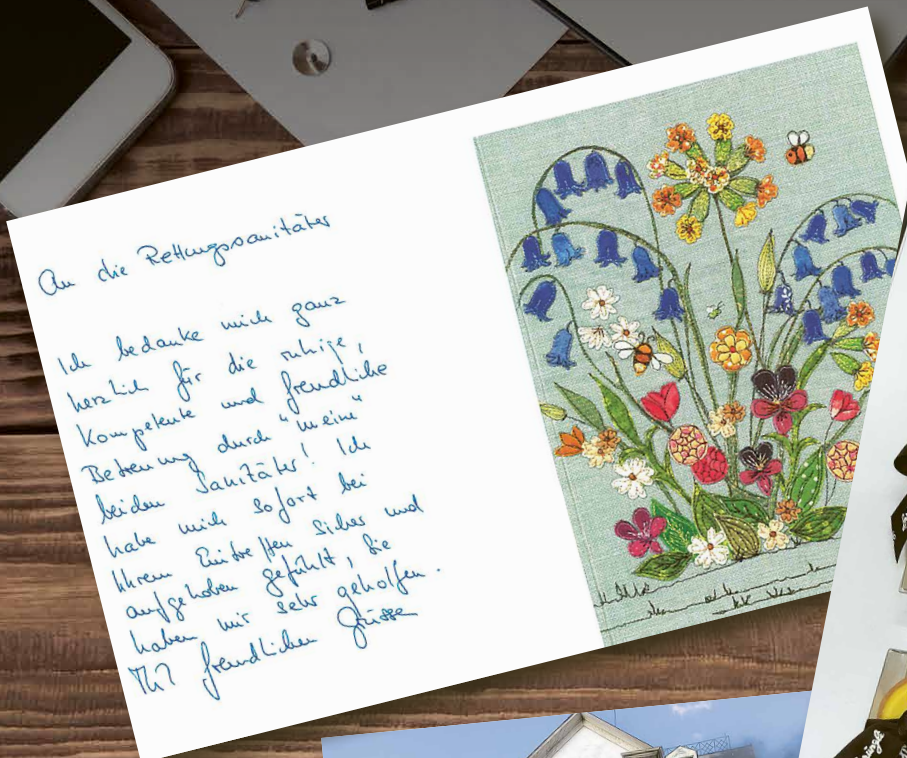 An die Rettungssanitäter
Ich bedanke mich ganz
herzlich für die ruhige,
kompetente und freundliche
Betreuung durch "meine"
beiden Sanitäter! Ich
habe mich sofort bei
Ihrem Eintreffen sicher und
aufgehoben gefühlt, Sie
haben mir sehr geholfen.
Mit freundlichen Grüssen